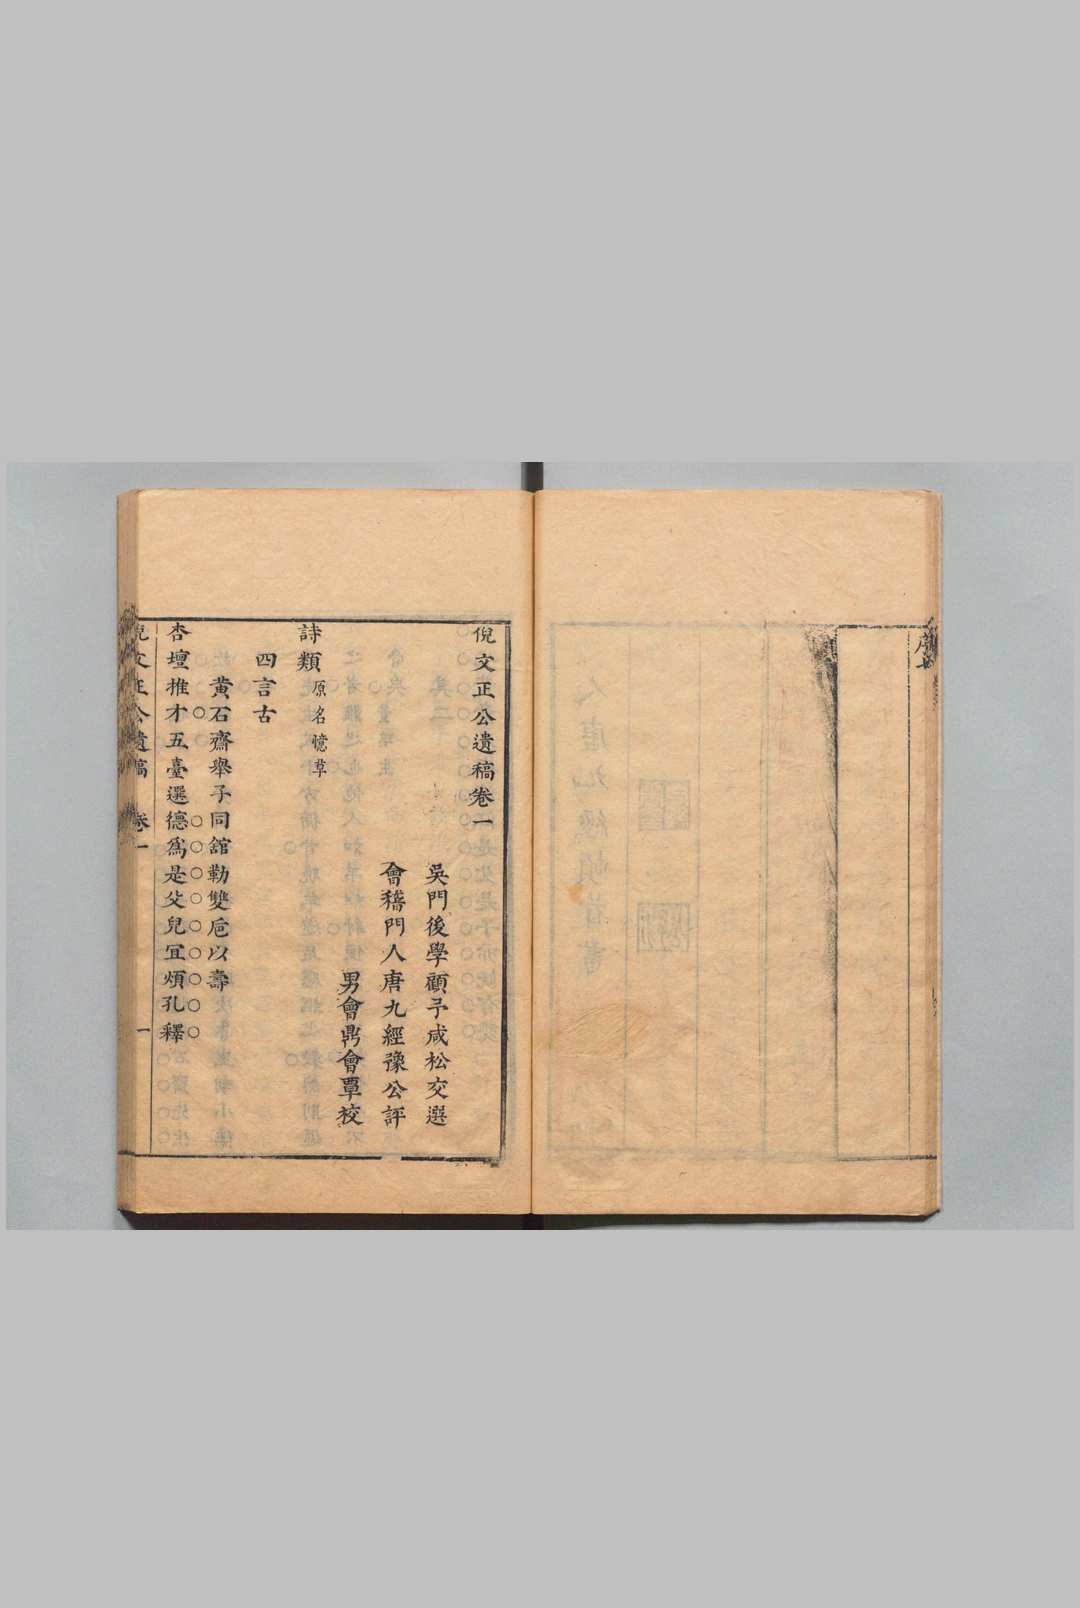 序
倪文正公遺稿卷一
吳門後學顧予咸松交選
會稽門人唐九經豫公評
男會鼎會覃校
詩類原名憶草
四言古
黃石齋舉子同舘勒雙巵以壽
杏壇推才五臺選德爲是父兒宜煩孔釋
倪文正公遺稿 卷一 一